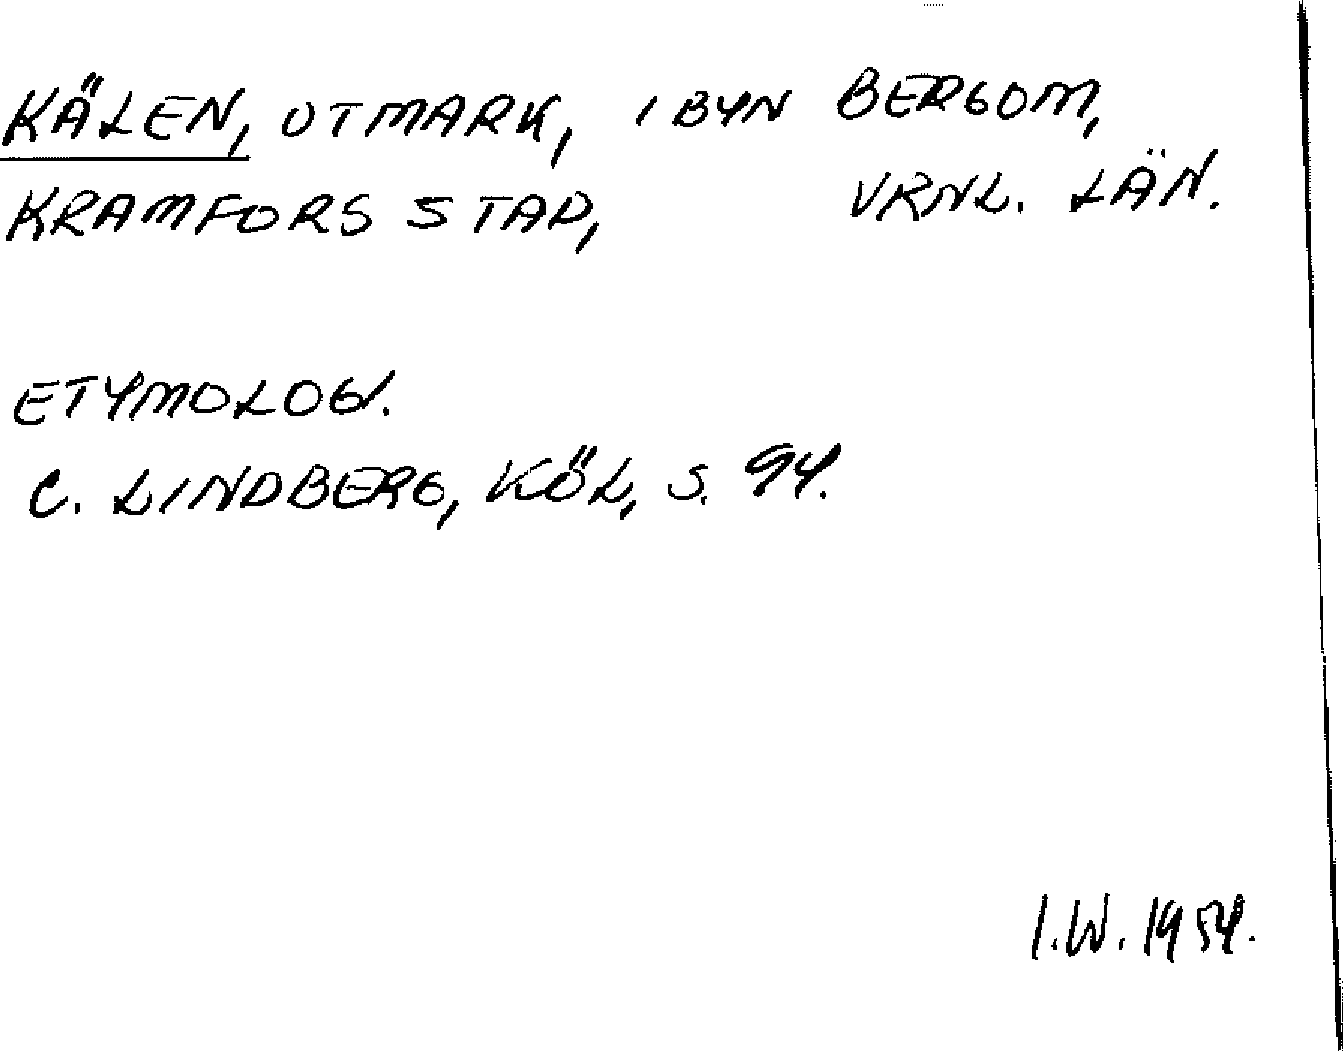 KÄLEN, UTMARK, I BYN BERGOM,
KRAMFORS STAD, VRNL. LÄN.
ETYMOLOGI.
C. LINDBERG, KÖL, S. 94.
I.W. 1954.